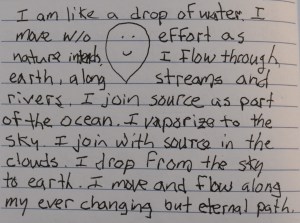 I am like a drop of water. I
move w/o effort as
nature intends, I flow through
earth, along streams and
rivers. I join source as part
of the ocean. I vaporize to the
sky. I join with source in the
clouds. I drop from the sky
to earth. I move and flow along
my ever changing but eternal path.